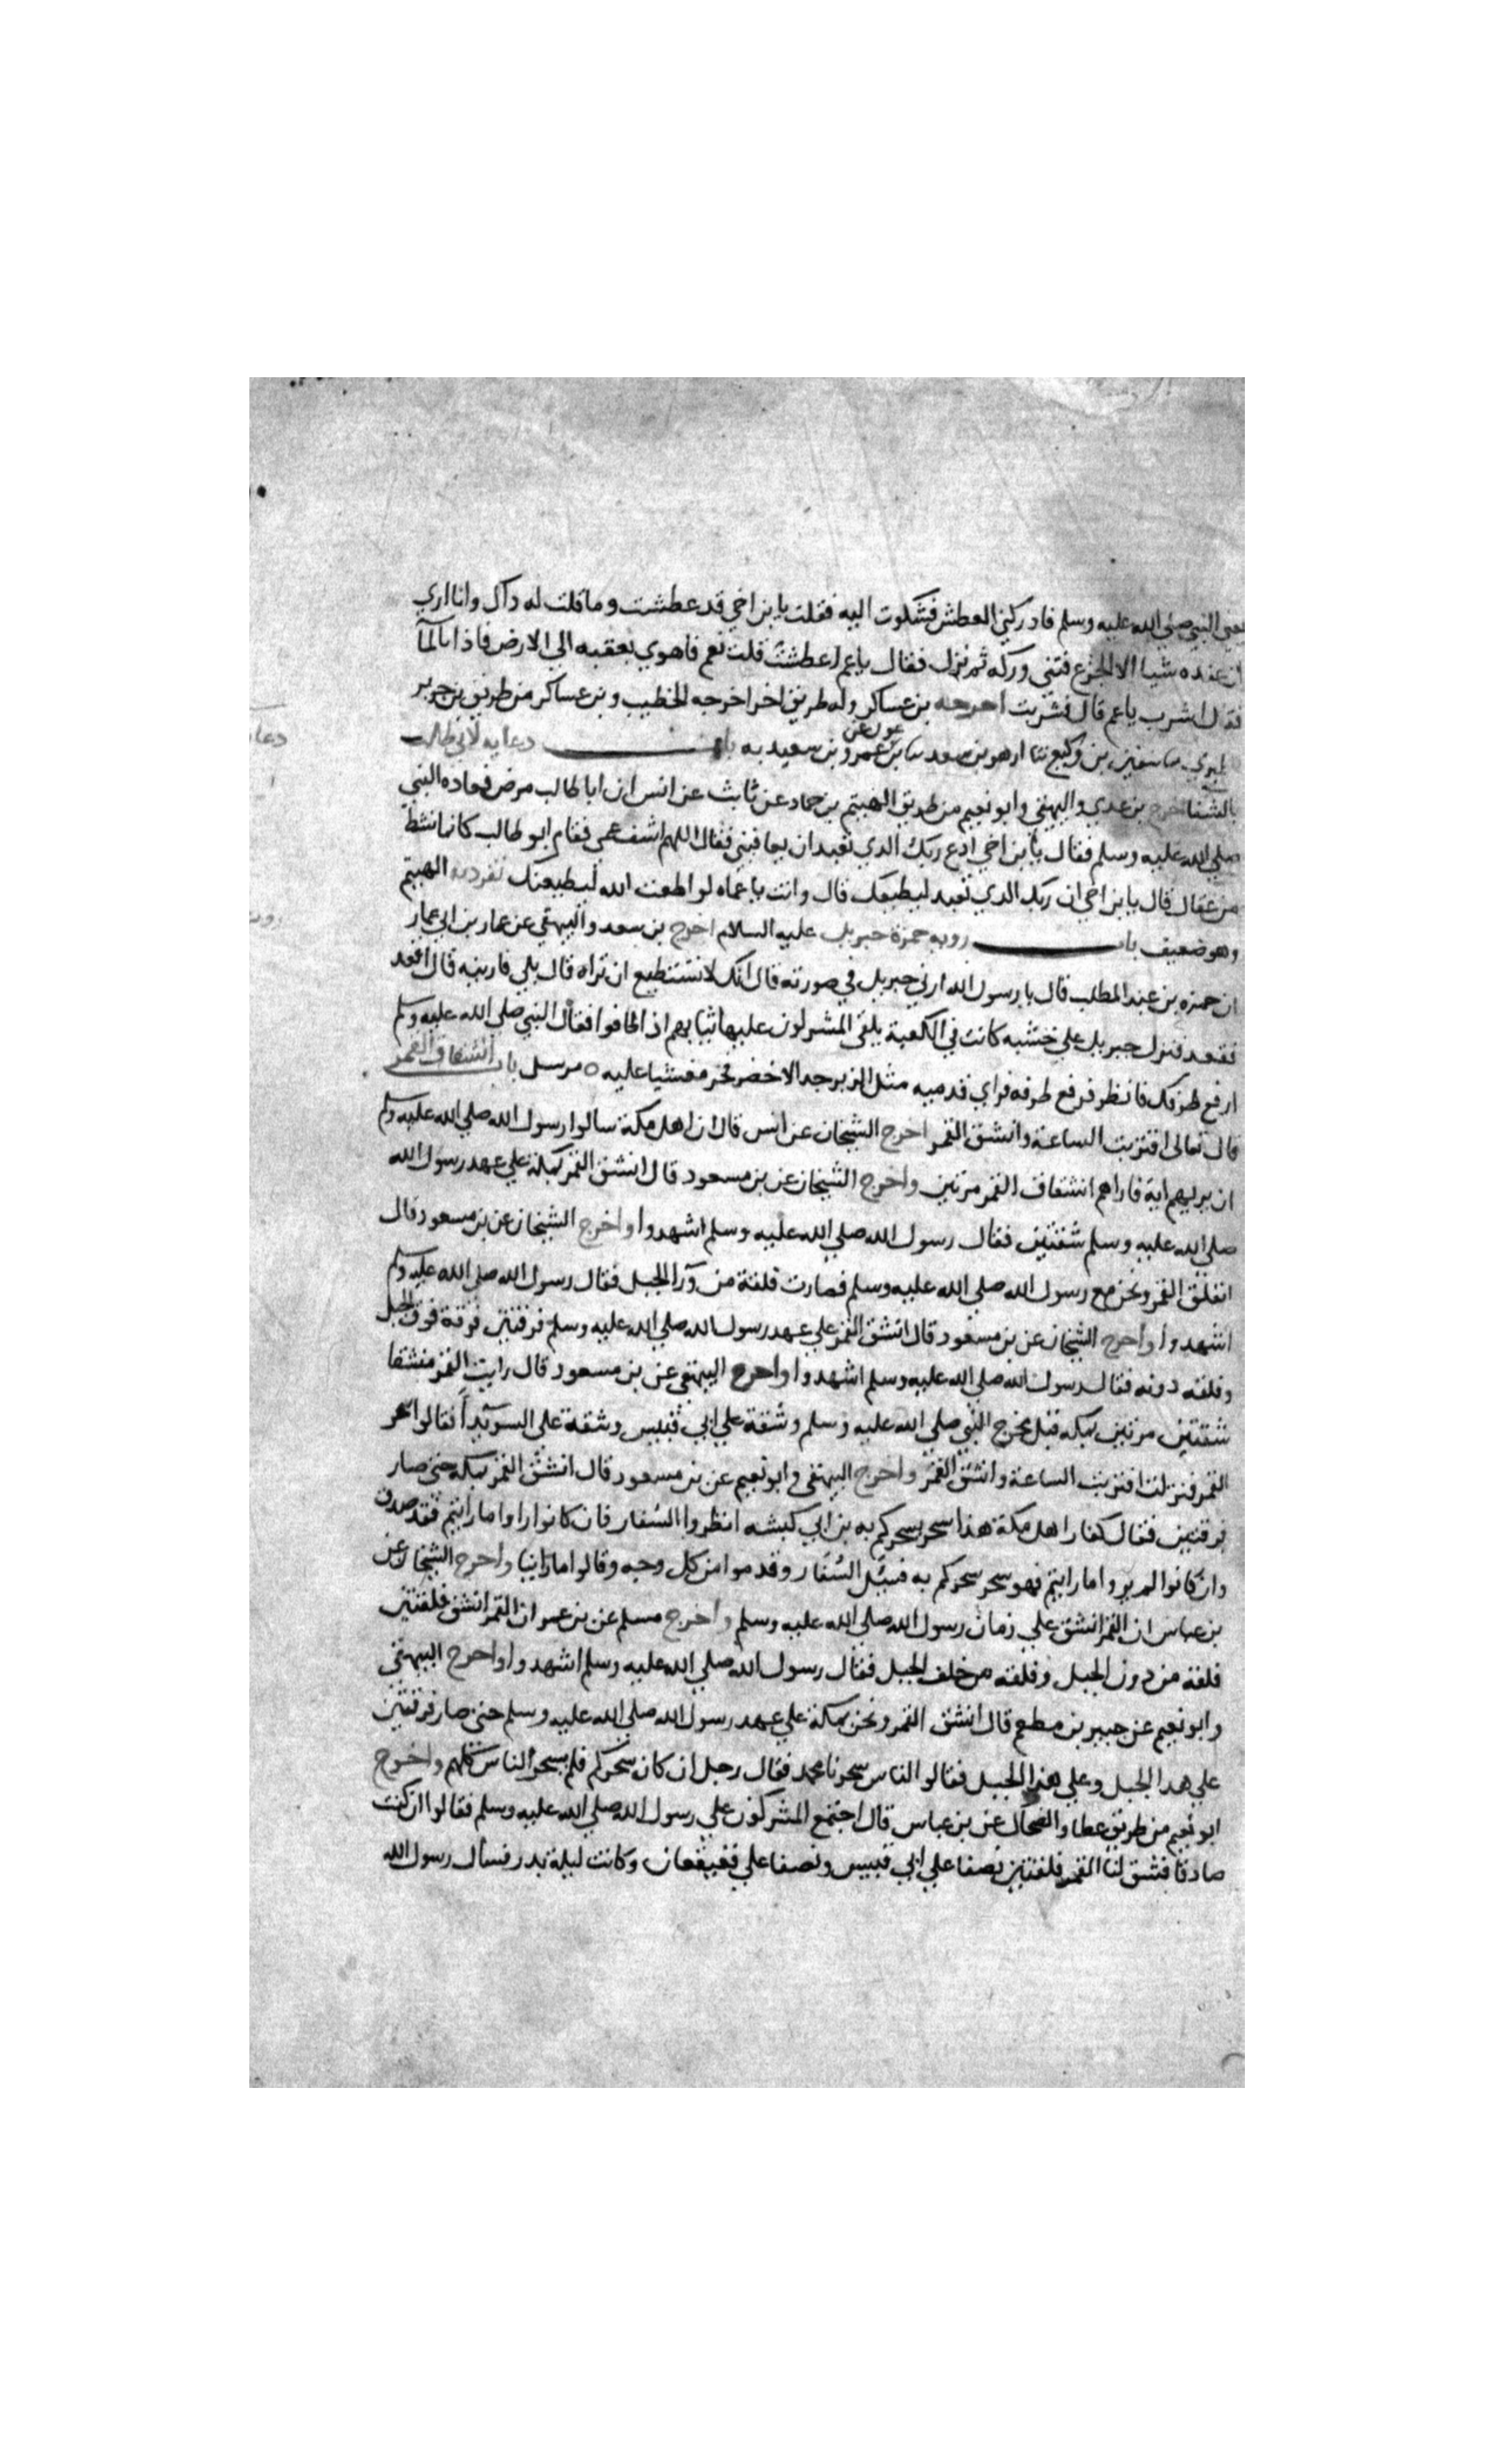 يعني النبي صلي الله عليه وسلم فادركني العطش فشكوت اليه فقلت يا بن اخي قد عطشت وما قلت له ذاك وانا اري
ان عنده شيا الا الجزع فثني وركه ثم نزل فقال يا عم اعطشت قلت نعم فاهوي بعقبه الي الارض فاذا بالمآ
فقال اشرب يا عم قال فشربت اخرجه بن عساكر وله طريق اخر اخرجه الخطيب وبن عساكر من طريق بن جرير
الطبري سفين بن وكيع ثنا ازهر بن سعد ثنا بن عون عن عمرو بن سعيد به باب دعايه لابي طالب
بالشفا اخرج بن عدي والبيهقي وابو نعيم من طريق الهيثم بن حماد عن ثابت عن انس ان ابا طالب مرض فعاده النبي
صلي الله عليه وسلم فقال يا بن اخي ادع ربك الذي تعبد ان يعافيني فقال اللهم اشف عمي فقام ابو طالب كانما نشط
من عقال قال يا بن اخي ان ربك الذي تعبد ليطيعك قال وانت يا عماه لو اطعت الله ليطيعنك تفرد به الهيثم
وهو ضعيف باب روية حمزة جبريل عليه السلام اخرج بن سعد والبيهقي عن عمار بن ابي عمار
ان حمزه بن عبد المطلب قال يا رسول الله ارني جبريل في صورته قال انك لا تستطيع ان تراه قال بلي فارنيه قال اقعد
فقعد فنزل جبريل علي خشبه كانت في الكعبة يلقي المشركون عليها ثيابهم اذا طافوا فقال النبي صلي الله عليه وسلم
ارفع طرفك فانظر فرفع طرفه فراي قدميه مثل الزبرجد الاخضر فخر مغشيا عليه ٥ مرسل باب انشقاق القمر
قال تعالى اقتربت الساعة وانشق القمر اخرج الشيخان عن انس قال ان اهل مكة سالوا رسول الله صلي الله عليه وسلم
ان يريهم اية فاراهم انشقاق القمر مرتين واخرج الشيخان عن بن مسعود قال انشق القمر بمكة علي عهد رسول الله
صلي الله عليه وسلم شقتين فقال رسول الله صلي الله عليه وسلم اشهدوا واخرج الشيخان عن بن مسعود قال
انفلق القمر ونحن مع رسول الله صلي الله عليه وسلم فصارت فلقة من ورآ الجبل فقال رسول الله صلي الله عليه وسلم
اشهدوا واخرج الشيخان عن بن مسعود قال انشق القمر علي عهد رسول الله صلي الله عليه وسلم فرقتين فرقة فوق الجبل
وفلقه دونه فقال رسول الله صلي الله عليه وسلم اشهدوا واخرج البيهقي عن بن مسعود قال رايت القمر منشقا
شقتين مرتين بمكه قبل مخرج النبي صلي الله عليه وسلم وشقة علي ابي قبيس وشقة علي السويدآ فقالوا سحر
القمر فنزلت اقتربت الساعة وانشق القمر واخرج البيهقي وابو نعيم عن بن مسعود قال انشق القمر بمكه حتي صار
فرقتين فقال كفار اهل مكة هذا سحر يسحركم به بن ابي كبشه انظروا السفار فان كانوا راوا ما رايتم فقد صدق
وان كانوا لم يروا ما رايتم فهو سحر سحركم به فسيل السفار وقدموا من كل وجه وقالوا ما راينا واخرج الشيخان عن
بن عباس ان القمر انشق علي زمان رسول الله صلي الله عليه وسلم واخرج مسلم عن بن عمر ان القمر انشق فلقتين
فلقة من دون الجبل وفلقه من خلف الجبل فقال رسول الله صلي الله عليه وسلم اشهدوا واخرج البيهقي
وابو نعيم عن جبير بن مطعم قال انشق القمر ونحن بمكة علي عهد رسول الله صلي الله عليه وسلم حتي صار فرقتين
علي هذا الجبل وعلي هذا الجبل فقالوا الناس سحرنا محمد فقال رجل ان كان سحركم فلم يسحر الناس كلهم واخرج
ابو نعيم من طريق عطا والضحاك عن بن عباس قال اجتمع المشركون علي رسول الله صلي الله عليه وسلم فقالوا ان كنت
صادقا فشق لنا القمر فلقتين نصفا علي ابي قبيس ونصفا علي قعيقعان وكانت ليلة بدر فسال رسول الله